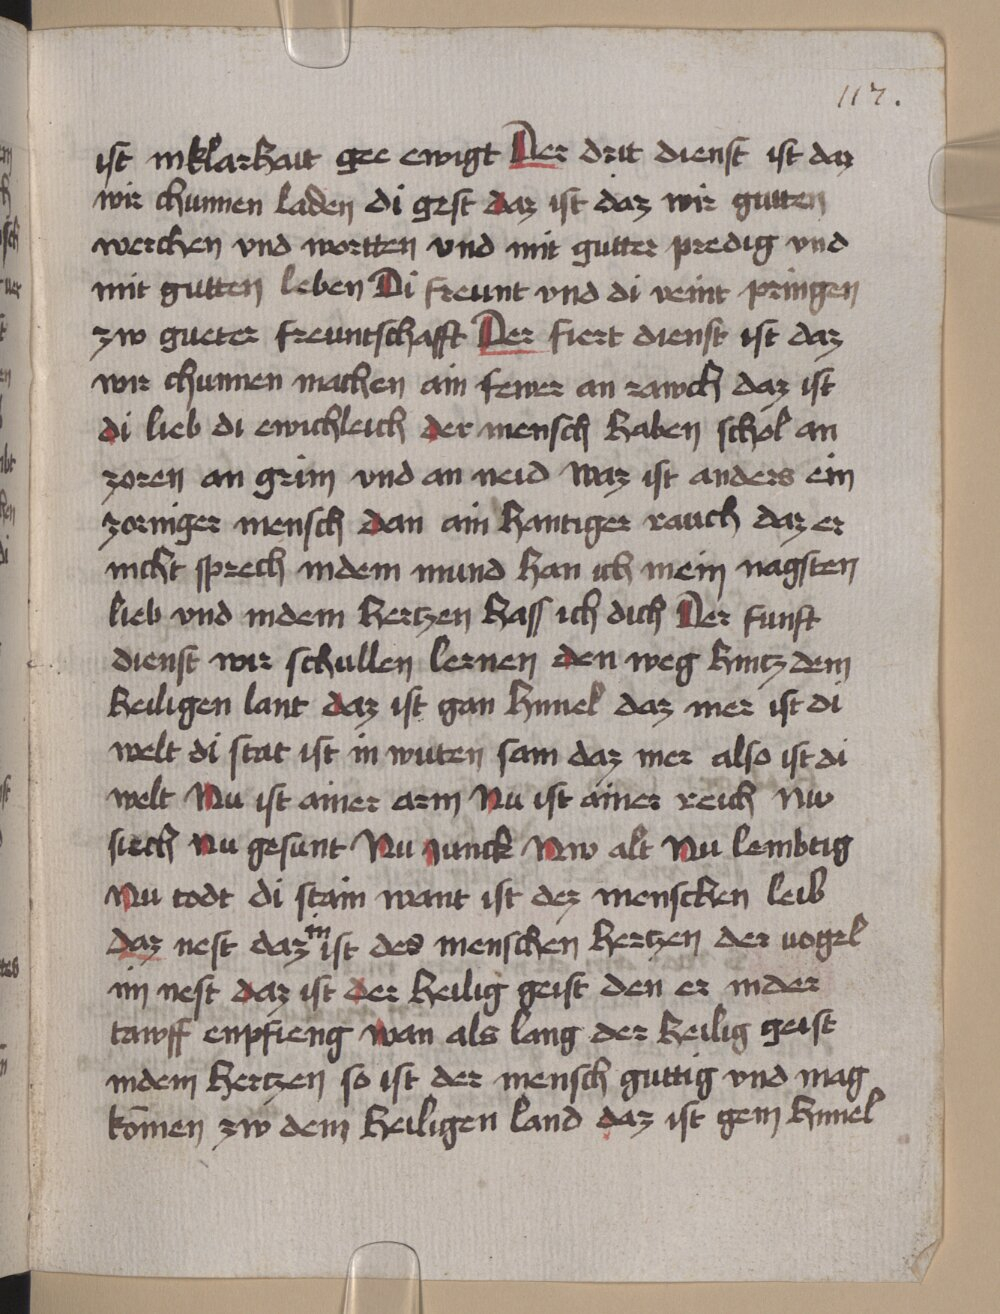 117.
ist inklarhait gee ewigt Der drit dienst ist daz
wir chunnen laden di gest daz ist daz wir gutten
werchen vnd wortten vnd mit gutter predig vnd
mit gutten leben Di freunt vnd di veint pringen
zw gueter freuntschafft Der fiert dienst ist daz
wir chunnen machen ain fewer an rawch daz ist
di lieb di ewichleich der mensch haben schol an
zoren an grim vnd an neid Waz ist anders ein
zorniger mensch dan ain hantiger rauch daz er
nicht sprech indem mund han ich mein nagsten
lieb vnd indem hertzen hass ich dich Der funft
dienst wir schullen lernen den weg hintz dem
heiligen lant daz ist gan himel daz mer ist di
welt di stat ist in wuten sam daz mer also ist di
welt Nu ist ainer arm Nu ist ainer reich Nw
siech Nu gesunt Nu Junck Nw alt Nu lembtig
Nu todt di stain want ist dez menschen leib
daz nest daz in ist des menschen hertzen der uogel
im nest daz ist der heilig geist den er inder
tawff enpfieng wan als lang der heilig geist
indem hertzen so ist der mensch guttig vnd mag
kōmen zw dem heiligen land daz ist gem himel